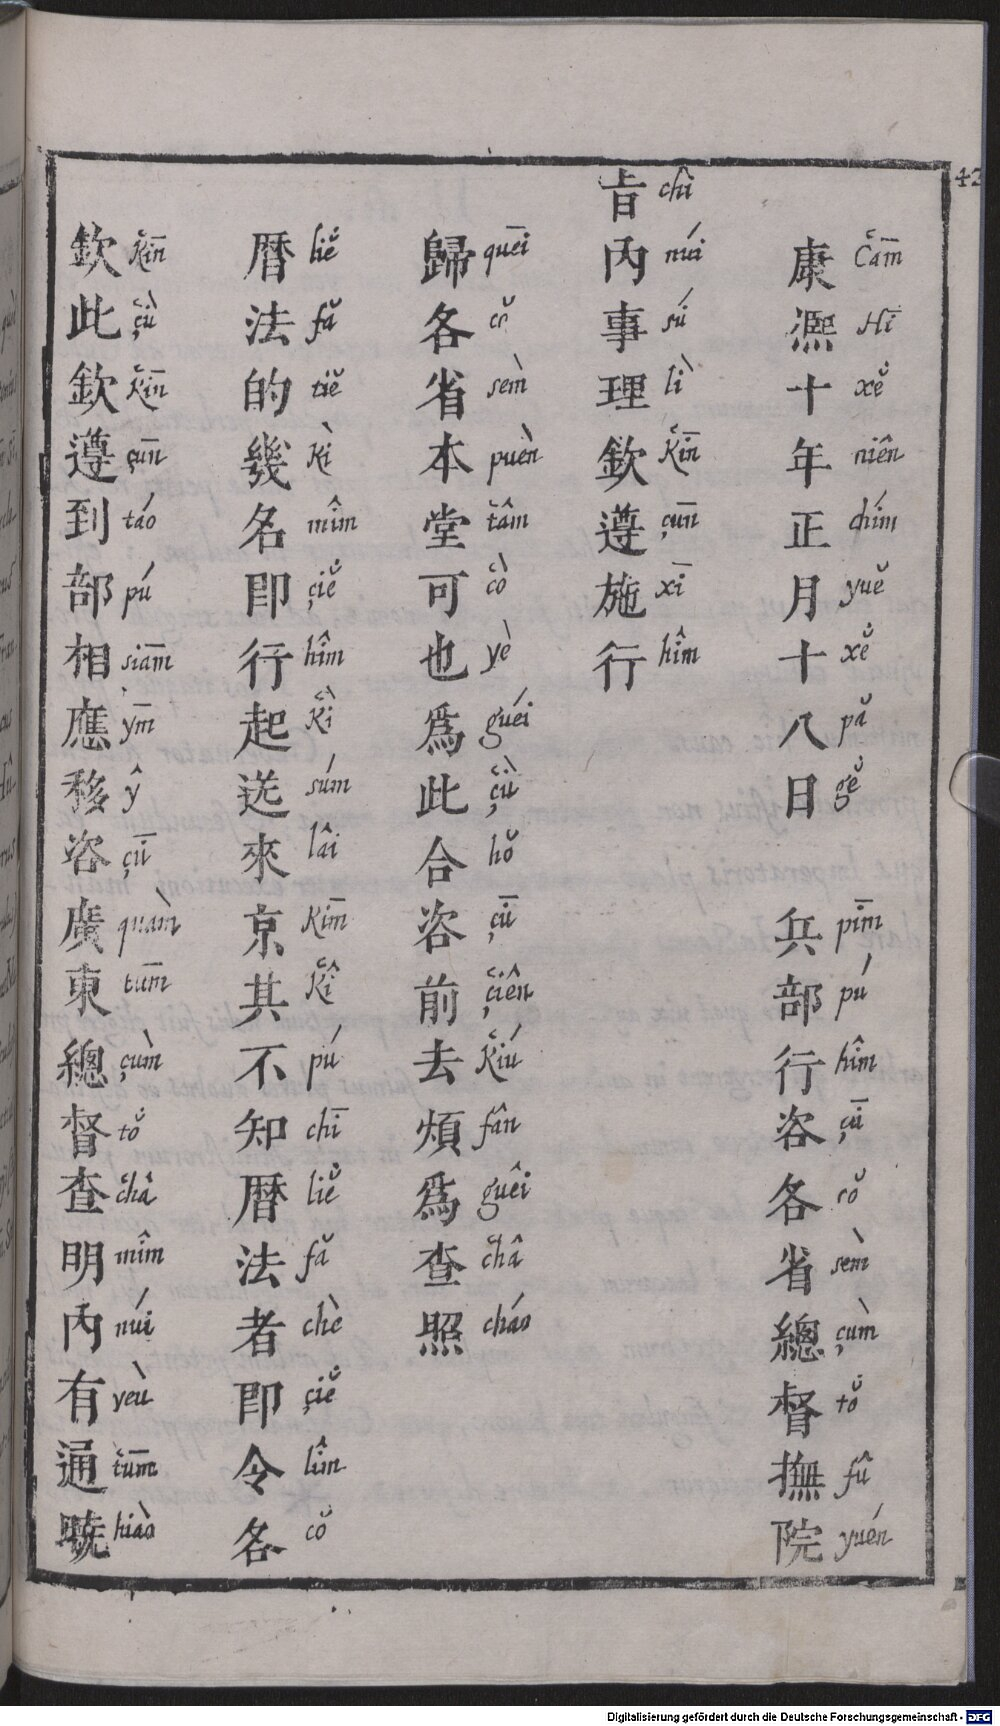 欽此欽遵到部相應移咨廣東總督查明內有通曉
Ǩīn çù Ǩīn çūn táo pú siām ým ŷ çū quàm tūm çùm tŏ châ mîm núi yeù tūm hiào
曆法的幾名即行起送來京其不知曆法者即令各
liĕ fă tiĕ Kì mîm çiĕ hîm Kì súm lâi Kīm Kî pú chī liĕ fă chè çiĕ lîm cŏ
歸各省本堂可也為此合咨前去煩為查照
queī cŏ sèm puèn tâm cò yè guéi çù hŏ çū çiên Kiú fân guêi châ cháo
旨內事理欽遵施行
chì núi sú lì Kīn çūn xī hîm
康熙十年正月十八日 兵部行咨各省總督撫院
Cām Hī xĕ niên chím yuĕ xĕ pă gĕ pīm pú hîm çū cŏ sèm çùm tŏ fû yuén
42
Digitalisierung gefördert durch die Deutsche Forschungsgemeinschaft - DFG